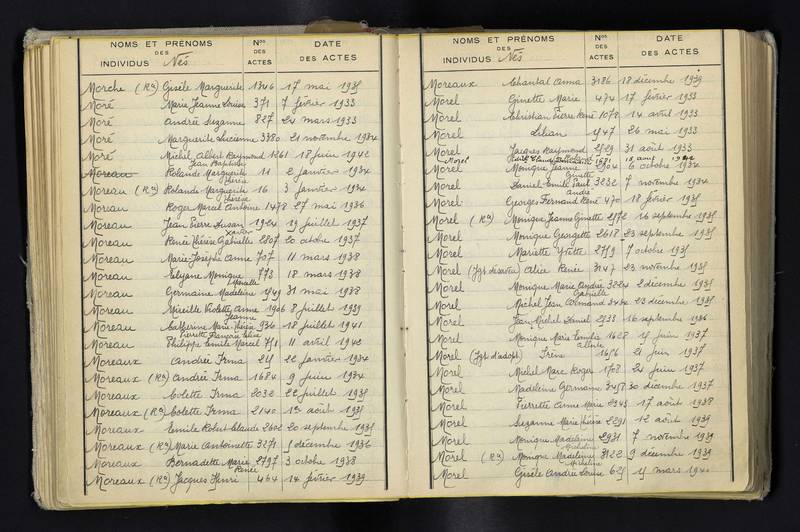 NOMS ET PRÉNOMS
DES
INDIVIDUS Nés
Nos
DES
ACTES
DATE
DES ACTES
Morche (Ron) Gisèle Marguerite 1346 17 mai 1935
Moré Marie Jeanne Louise 371 7 février 1933
Moré Andrée Suzanne 827 24 mars 1933
Moré Marguerite Lucienne 3380 21 novembre 1934
Moré Michel Albert Raymond 1261 18 juin 1942
Jean Baptiste
Moreau Rolande Marguerite 11 2 janvier 1934
Thérèse
Moreau (Ron) Rolande Marguerite 16 3 janvier 1934
Thérèse
Moreau Roger Marcel Antoine 1478 27 mai 1936
Moreau Jean Pierre 1924 19 juillet 1937
Xavier
Moreau Renée Thérèse Gabrielle 2807 20 octobre 1937
Moreau Marie-Josèphe Anne 707 11 mars 1938
Moreau Elyane Monique 773 18 mars 1938
Moreau Germaine Madeleine 1549 31 mai 1938
Moreau Mireille Violette Anne 1906 8 juillet 1939
Jeanne
Moreau Catherine Marie Thérèse 936 18 juillet 1941
Moreau Philippe Emile Marcel 751 11 avril 1942
Moreaux Andrée Irma 25 22 janvier 1934
Moreaux (Ron) Andrée Irma 1684 9 juin 1934
Moreaux Colette Irma 2032 22 juillet 1935
Moreaux (Ron) Colette Irma 2140 1er août 1935
Moreaux Emile Robert Claude 2602 20 septembre 1935
Moreaux (Ron) Marie Antoinette 3271 1 décembre 1936
Moreaux Bernadette Marie 2797 3 octobre 1938
Renée
Moreaux (Ron) Jacques Henri 464 14 février 1939
NOMS ET PRÉNOMS
DES
INDIVIDUS Nés
Nos
DES
ACTES
DATE
DES ACTES
Moreaux Chantal Anna 3186 18 décembre 1939
Morel Ginette Marie 474 17 février 1933
Morel Christian Pierre René 1078 14 avril 1933
Morel Lilian 1547 26 mai 1933
Morel Jacques Raymond 2529 31 août 1933
Morel 1581 1942
Morel Monique Jeanne 2904 6 octobre 1934
Ginette
Morel Daniel Emile Paul 3232 7 novembre 1934
André
Morel Georges Fernand René 470 18 février 1935
Morel (Ron) Monique Jeanne Ginette 2572 16 septembre 1935
Morel Monique Georgette 2618 23 septembre 1935
Morel Mariette Yvette 2759 7 octobre 1935
Morel Alice Renée 3147 23 novembre 1935
Morel Monique Marie Andrée 3224 2 décembre 1935
Gabrielle
Morel Michel Jean Armand 3432 23 décembre 1935
Morel Jean Michel Daniel 2533 16 septembre 1936
Morel Monique Marie 1628 15 juin 1937
Morel (Jgt d'adopt) Irène 1656 21 juin 1937
Morel Michel Marc Roger 1708 25 juin 1937
Morel Madeleine Germaine 3458 30 décembre 1937
Morel Pierrette Anne Marie 2343 17 août 1938
Morel Suzanne Marie Thérèse 2291 12 août 1939
Morel Monique Madeleine 2931 7 novembre 1939
Micheline
Morel (Ron) Monique Madeleine 3122 9 décembre 1939
Micheline
Morel Gisèle Andrée Louise 625 15 mars 1940